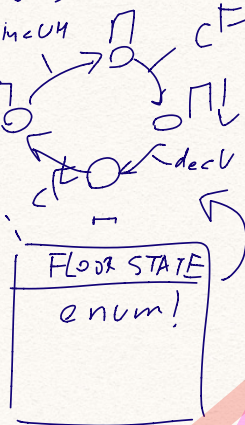 incUH
C
decU
C
FLOOR STATE
enum!